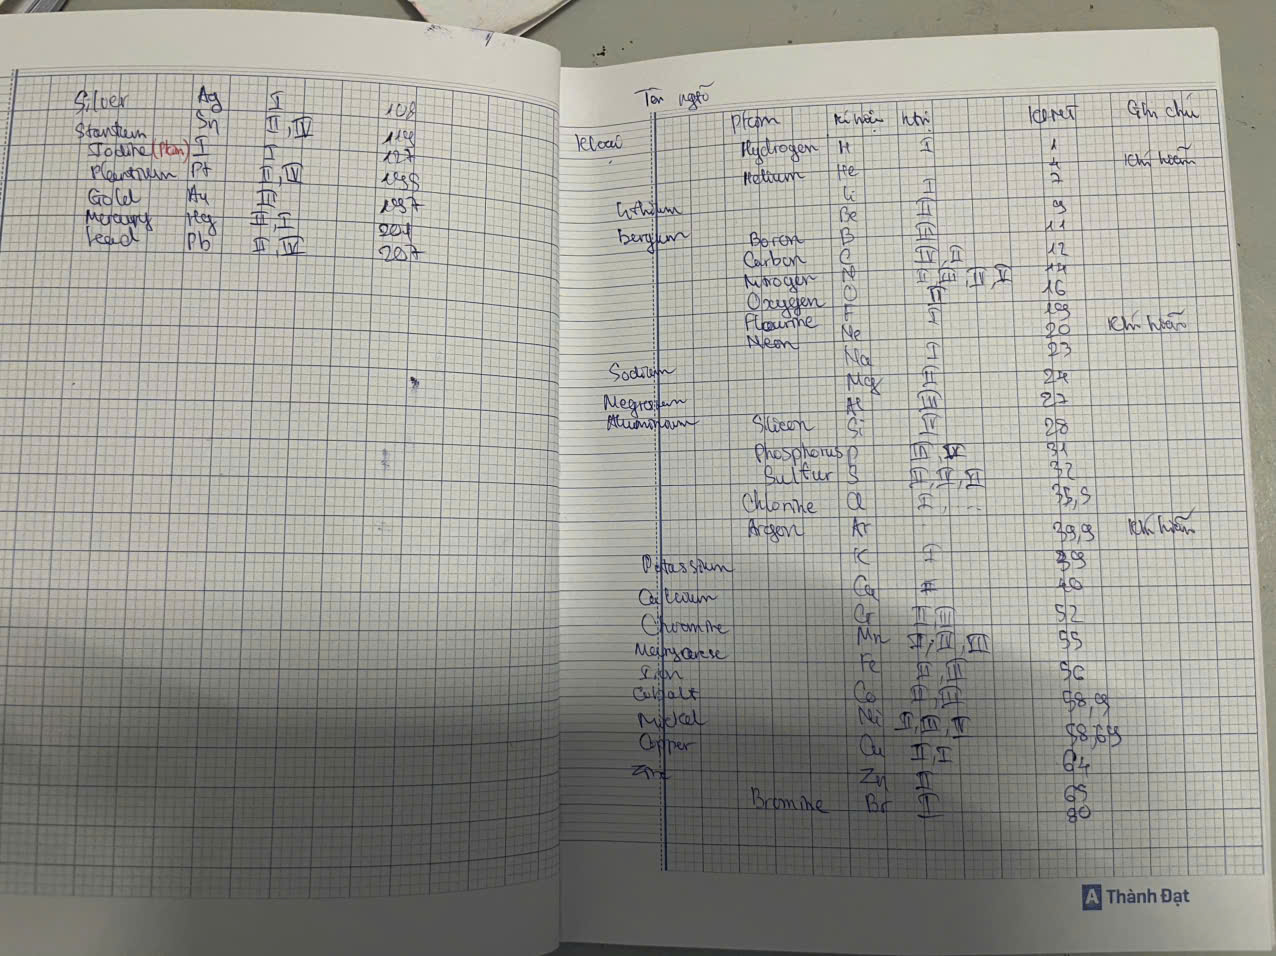 Silver Ag I 108
Stantium Sn II, IV 119
Iodine (Pkim) I I 127
Plantinium Pt II, IV 195
Gold Au III 197
Mercury Hg II, I 201
Lead Pb II, IV 207
Tên ngtố
Kloại Pkim Kí hiệu htrị KLNT Ghi chú
Hydrogen H I 1
Helium He 4 Khí hiếm
Lithium Li I 7
Beryium Be II 9
Boron B III 11
Carbon C IV, II 12
Nitrogen N II, III, IV, V 14
Oxygen O II 16
Flourine F I 19
Neon Ne 20 Khí hiếm
Sodium Na I 23
Mg II 24
Aluminium Al III 27
Silicon Si IV 28
Phosphorus P III, V 31
Sulfur S II, IV, VI 32
Chlorine Cl I, .... 35,5
Argon Ar 39,9 Khí hiếm
Potassium K I 39
Calcium Ca II 40
Chromine Cr II, III 52
Manganese Mn II, IV, VII 55
Iron Fe II, III 56
Cobalt Co II, III 58,9
Nickel Ni II, III, IV 58,69
Copper Cu II, I 64
Zinc Zn II 65
Bromine Br I 80
A Thành Đạt